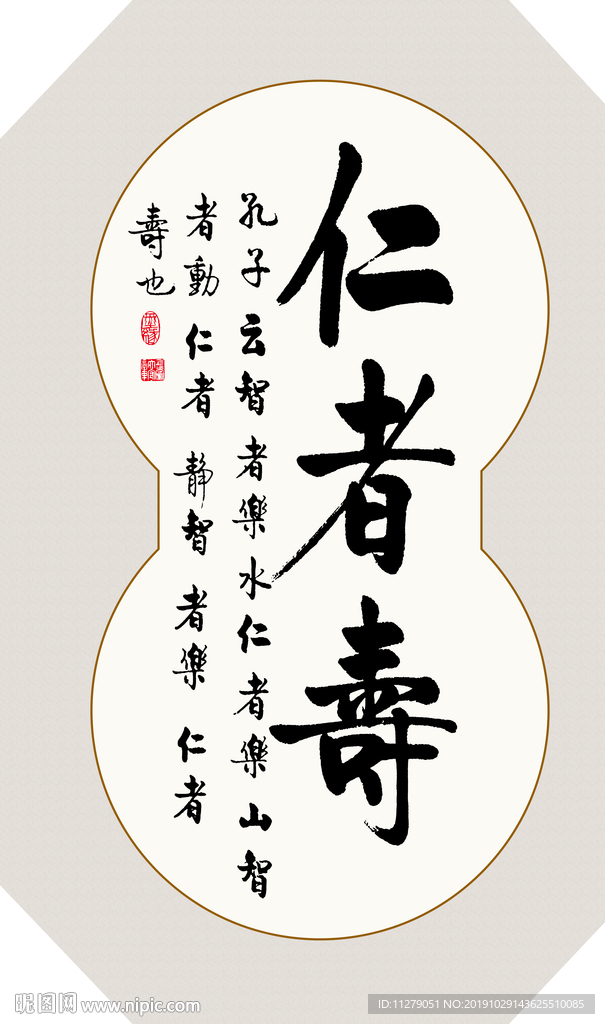 仁者壽
孔子云智者樂水仁者樂山智
者動仁者靜智者樂仁者
壽也
昵图网 www.nipic.com
ID:11279051 NO:20191029143625510085